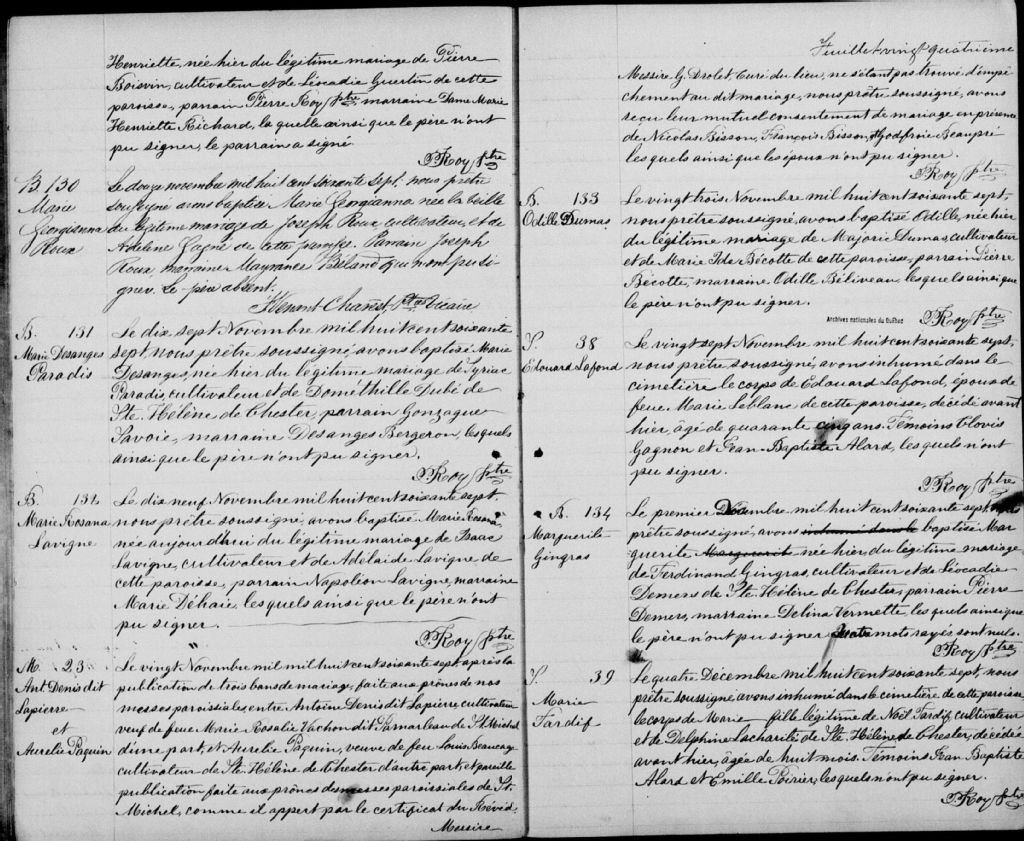 Henriette, née hier du légitime mariage de Pierre
Boisvin, cultivateur et de Léocadie Guertin de cette
paroisse, parrain Pierre Roy ptre, marraine Dame Marie
Henriette Richard, la quelle ainsi que le père n'ont
pu signer, le parrain a signé
P. Roy ptre
B. 130
Marie
Georgianna
Roux
Le douze novembre mil huit cent soixante sept, nous prêtre
soussigné avons baptisé Marie Georgianna née la veille
du légitime mariage de Joseph Roux cultivateur et de
Adéline Gagné de cette paroisse. Parrain Joseph
Roux marraine Béland qui n'ont pu si
gner. Le père absent.
Ptre Vicaire
B. 131
Marie Desanges
Paradis
Le dix sept Novembre mil huit cent soixante
sept, nous prêtre soussigné, avons baptisé Marie
Desanges, née hier du légitime mariage de Cyriac
Paradis, cultivateur et de Dométhille Dubé de
Ste. Hélène de Chester, parrain Gonzague
Savoie, marraine Desanges Bergeron, lesquels
ainsi que le père n'ont pu signer.
P. Roy ptre
B. 132
Marie Rosana
Lavigne
Le dix neuf Novembre mil huit cent soixante sept
nous prêtre soussigné, avons baptisé Marie Rosana
née aujourdhui du légitime mariage de Isaac
Lavigne, cultivateur et de Adélaide Lavigne de
cette paroisse, parrain Napoléon Lavigne, marraine
Marie Déhaie, lesquels ainsi que le père n'ont
pu signer.
P. Roy ptre
M. 23
Ant. Denis dit
Lapierre
et
Aurelie Paquin
Le vingt Novembre mil mil huit cent soixante sept, après la
publication de trois bans de mariage, faite aux prônes de nos
messes paroissiales, entre Antoine Denis dit Lapierre, cultivateur
veuf de feue Marie Rosalie Vachon dit Pamarleau de St. Michel
d'une part, et Aurelie Paquin, veuve de feu Louis Beaucage
cultivateur de Ste. Hélène de Chester d'autre part, et pareille
publication faite aux prônes des messes paroissiales de St.
Michel, comme il appert par le certificat du Révd.
Messire
Feuillet vingt quatrième
Messire G. Drolet Curé du lieu, ne s'étant pas trouvé d'empê
chement au dit mariage, nous prêtre soussigné, avons
reçu leur mutuel consentement de mariage en présence
de Nicolas Bisson, François Bisson, Godfroie Beaupré
lesquels ainsi que les époux n'ont pu signer.
P. Roy ptre
B. 133
Odille Dumas
Le vingt trois Novembre mil huit cent soixante sept,
nous prêtre soussigné, avons baptisé Odille, née hier
du légitime mariage de Majorie Dumas, cultivateur
et de Marie Ida Bécotte de cette paroisse, parrain Pierre
Bécotte, marraine Odille Béliveau, lesquels ainsi que
le père n'ont pu signer.
P. Roy ptre
Archives nationales du Québec
S. 38
Edouard Lafond
Le vingt sept Novembre mil huit cent soixante sept,
nous prêtre soussigné, avons inhumé dans le
cimetière le corps de Edouard Lafond, époux de
feue Marie Leblanc de cette paroisse, décédé avant
hier, âgé de quarante cinq ans. Témoins Clovis
Gagnon et Jean-Baptiste Alard, lesquels n'ont
pu signer.
P. Roy ptre
B. 134
Marguerite
Gingras
Le premier Décembre mil huit cent soixante sept, nous
prêtre soussigné, avons inhumé dans le baptisé Mar
guerite Marguerite née hier, du légitime mariage
de Ferdinand Gingras, cultivateur et de Léocadie
Demers de Ste. Hélène de Chester, parrain Pierre
Demers, marraine Delina Vermette, lesquels ainsi que
le père n'ont pu signer. Quatre mots rayés sont nuls.
P. Roy ptre
S. 39
Marie
Tardif
Le quatre Décembre mil huit cent soixante sept, nous
prêtre soussigné, avons inhumé dans le cimetière de cette paroisse
le corps de Marie fille légitime de Noël Tardif, cultivateur
et de Delphine Lacharité de Ste. Hélène de Chester, décédée
avant hier, âgée de huit mois. Témoins Jean Baptiste
Alard et Emille Poirier, lesquels n'ont pu signer.
P. Roy ptre